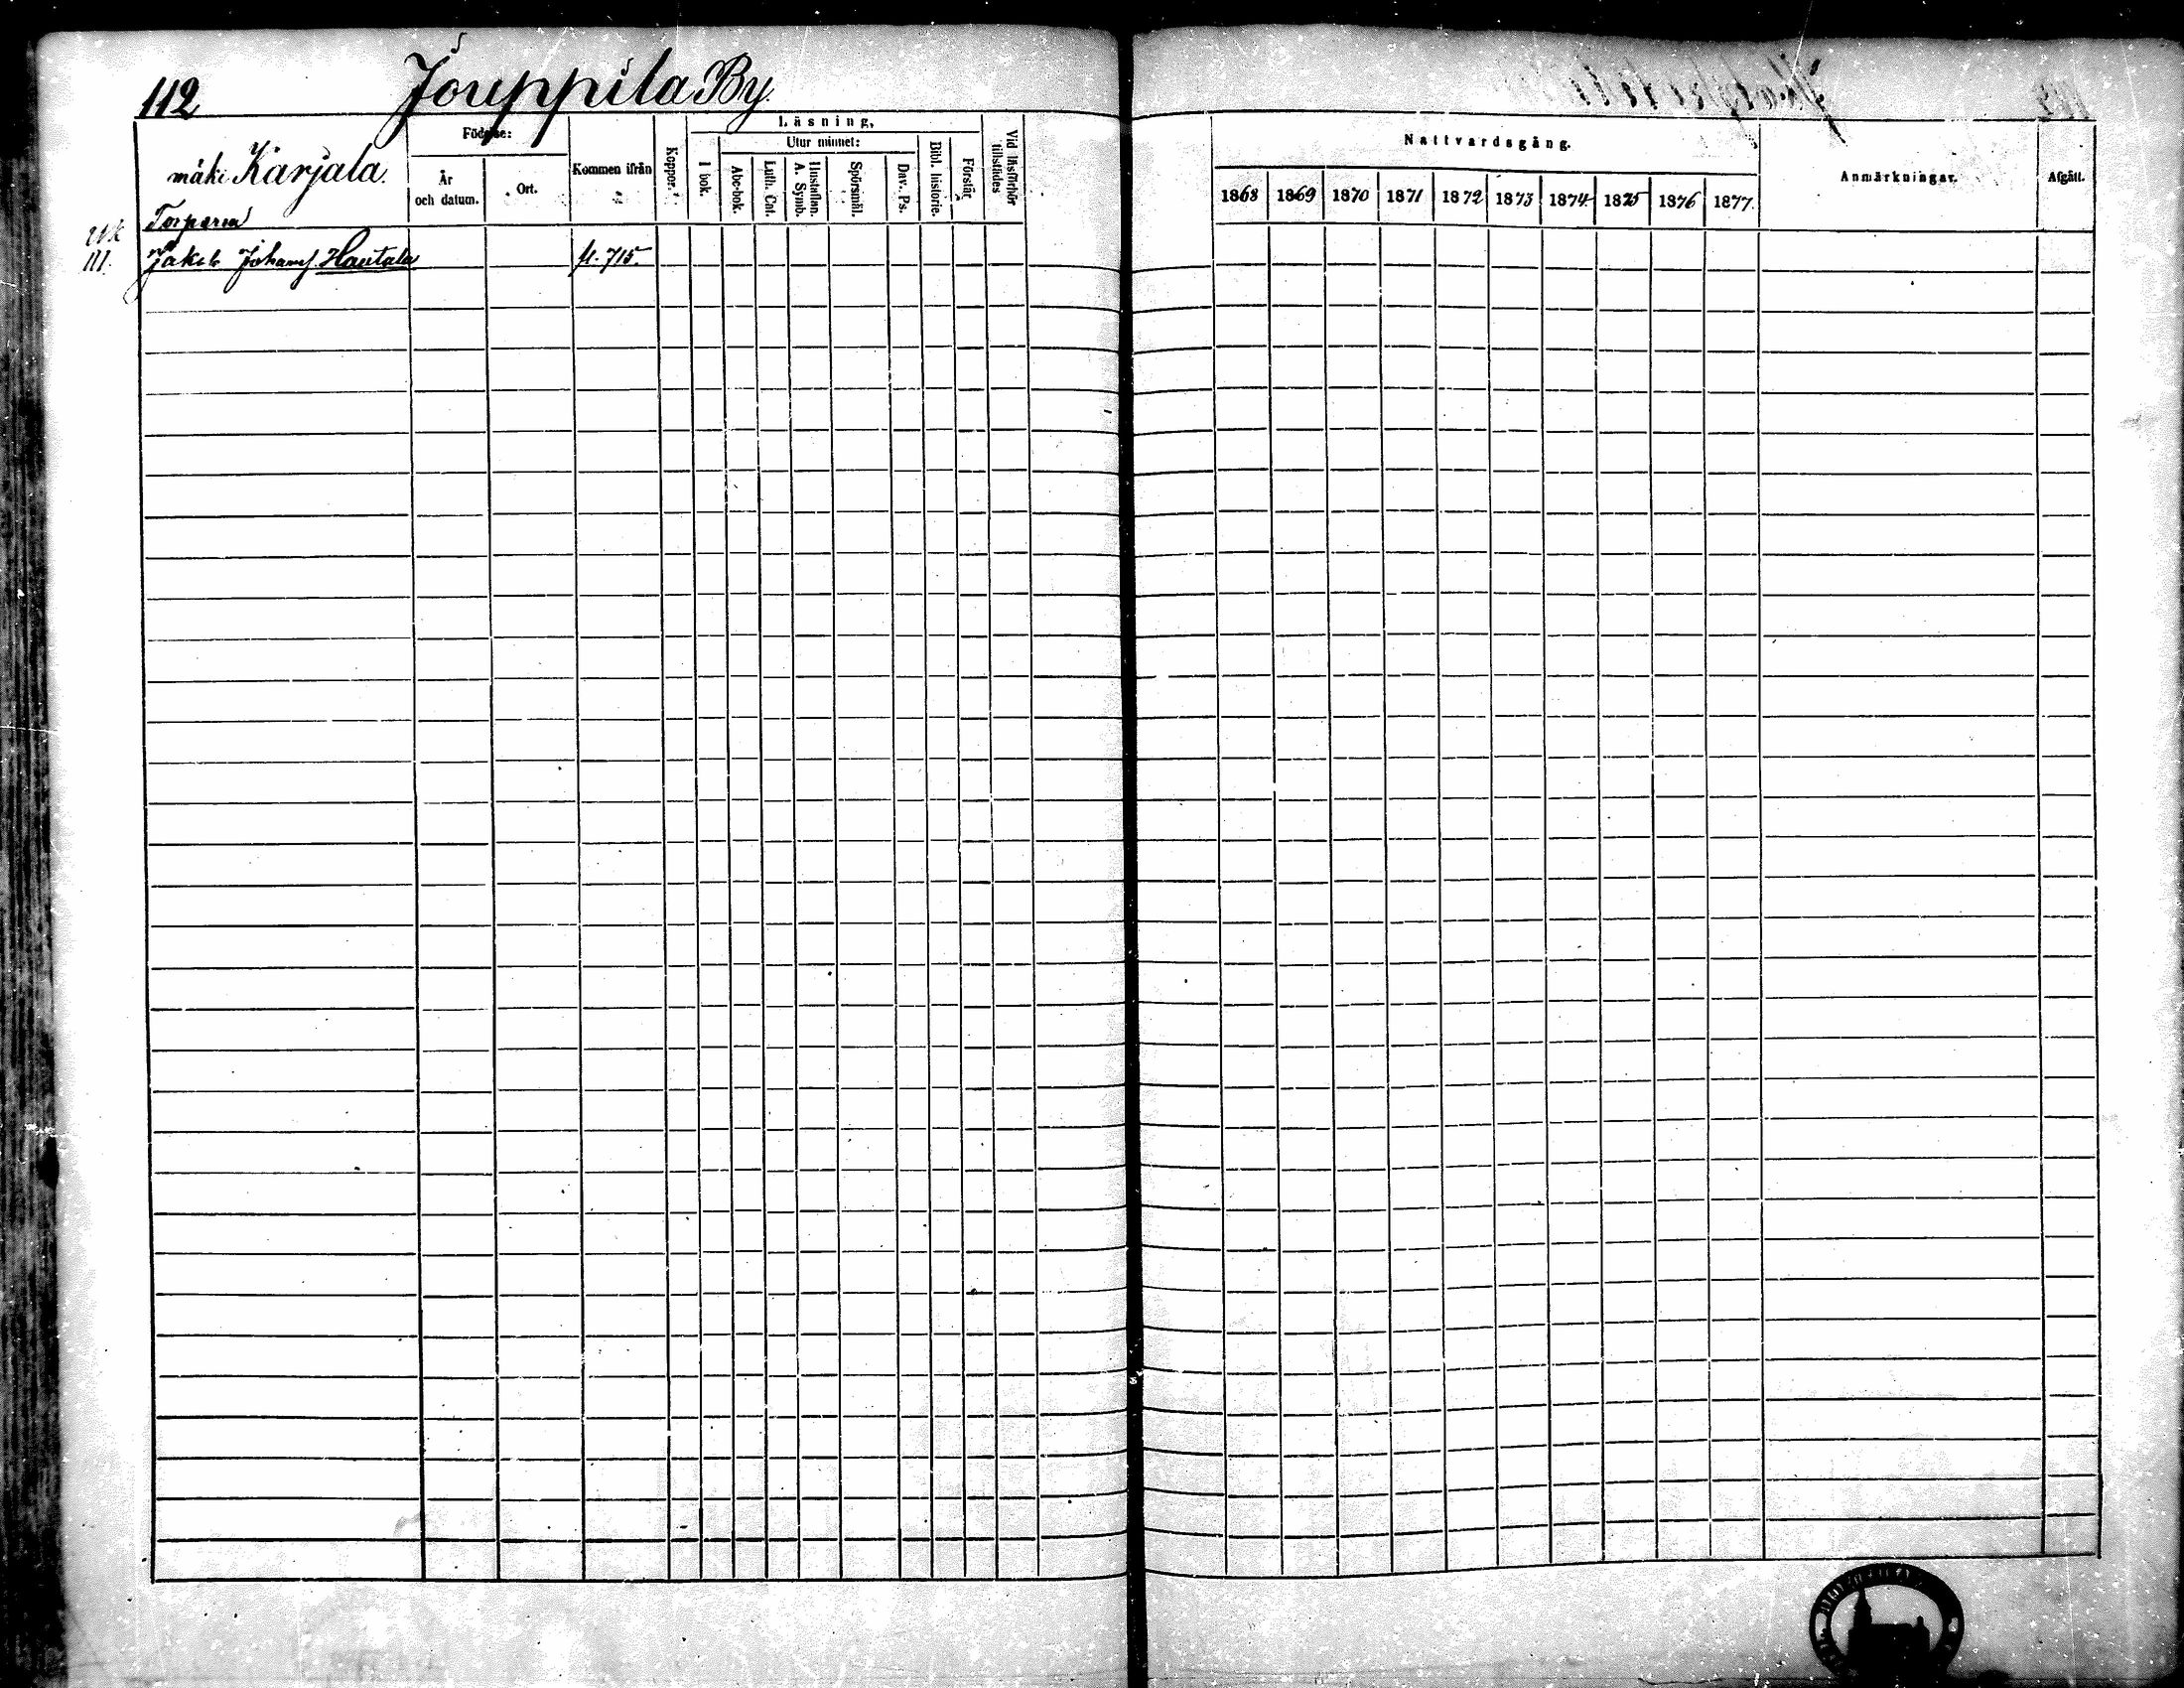 112 Jouppila By.
Födelse: Läsning,
mäki Karjala. År och datum. Ort. Kommen ifrån Koppor. I bok. Utur minnet: Abc-bok. Luth. Cat. Hustaflan. A. Symb. Spörsmål. Dav. Ps. Bibl. historie. Förstår Vid läsförhör tillstädes
Nattvardsgång. Anmärkningar. Afgått.
1868 1869 1870 1871 1872 1873 1874 1875 1876 1877.
Torparen
111. Jakob Johans. Hautala fl. 715.